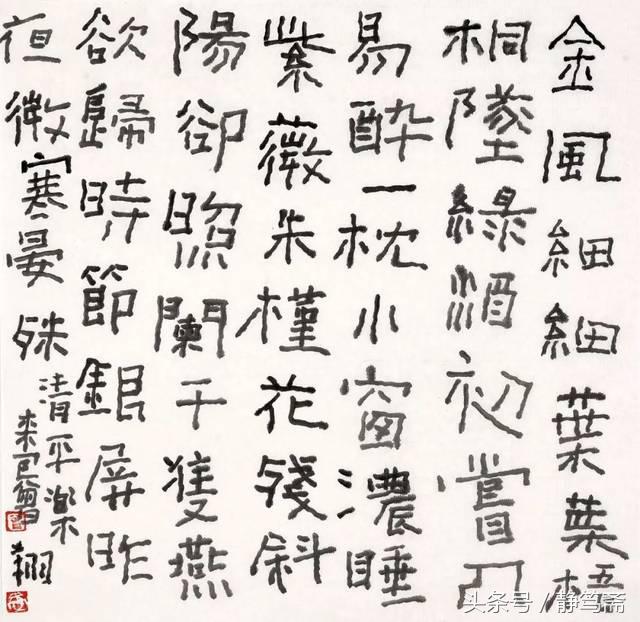 金風細細葉葉梧
桐墜綠酒初嘗人
易醉一枕小窗濃睡
紫薇朱槿花殘斜
陽卻照闌干雙燕
欲歸時節銀屏昨
夜微寒晏殊
清平樂
翔
头条号 / 静笃斋